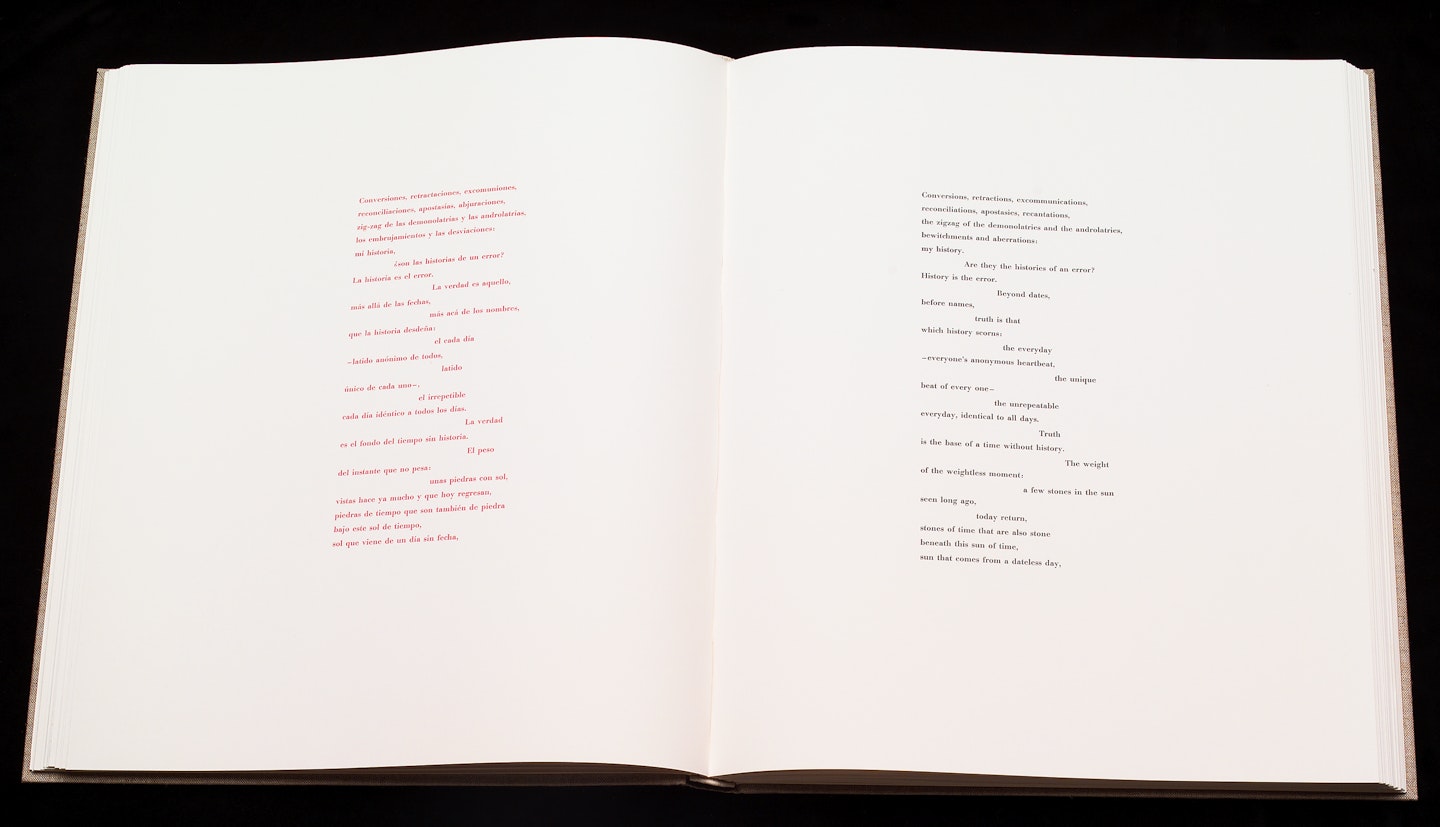 Conversiones, retractaciones, excomuniones,
reconciliaciones, apostasías, abjuraciones,
zig-zag de las demonolatrías y las androlatrías,
los embrujamientos y las desviaciones:
mi historia,
¿son las historias de un error?
La historia es el error.
La verdad es aquello,
más allá de las fechas,
más acá de los nombres,
que la historia desdeña:
el cada día
–latido anónimo de todos,
latido
único de cada uno–,
el irrepetible
cada día idéntico a todos los días.
La verdad
es el fondo del tiempo sin historia.
El peso
del instante que no pesa:
unas piedras con sol,
vistas hace ya mucho y que hoy regresan,
piedras de tiempo que son también de piedra
bajo este sol de tiempo,
sol que viene de un día sin fecha,
Conversions, retractions, excommunications,
reconciliations, apostasies, recantations,
the zigzag of the demonolatries and the androlatries,
bewitchments and aberrations:
my history.
Are they the histories of an error?
History is the error.
Beyond dates,
before names,
truth is that
which history scorns:
the everyday
–everyone's anonymous heartbeat,
the unique
beat of every one–
the unrepeatable
everyday, identical to all days.
Truth
is the base of a time without history.
The weight
of the weightless moment:
a few stones in the sun
seen long ago,
today return,
stones of time that are also stone
beneath this sun of time,
sun that comes from a dateless day,